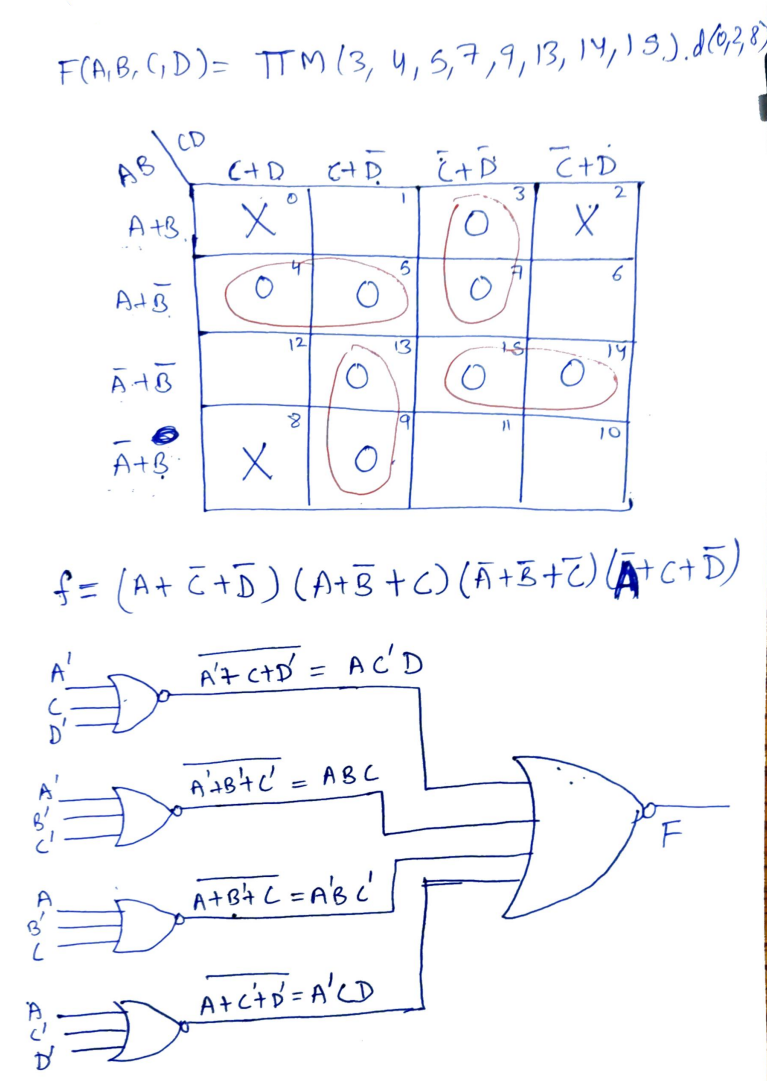 F(A,B,C,D)= ΠM(3, 4, 5,7,9,13,14,15).d(0,2,8)
AB \ CD
C+D C+D̅ C̅+D̅ C̅+D
A+B X 0 1 O 3 X 2
A+B̅ O 4 O 5 O 7 6
A̅+B̅ 12 O 13 O 15 O 14
A̅+B X 8 O 9 11 10
f= (A+C̅+D̅)(A+B̅+C)(A̅+B̅+C̅)(A̅+C+D̅)
A'
C
D'
A̅'̅+̅C̅+̅D̅'̅ = AC'D
A'
B'
C'
A̅'̅+̅B̅'̅+̅C̅'̅ = ABC
F
A
B'
C
A̅+̅B̅'̅+̅C̅ = A'BC'
A
C'
D'
A̅+̅C̅'̅+̅D̅'̅ = A'CD